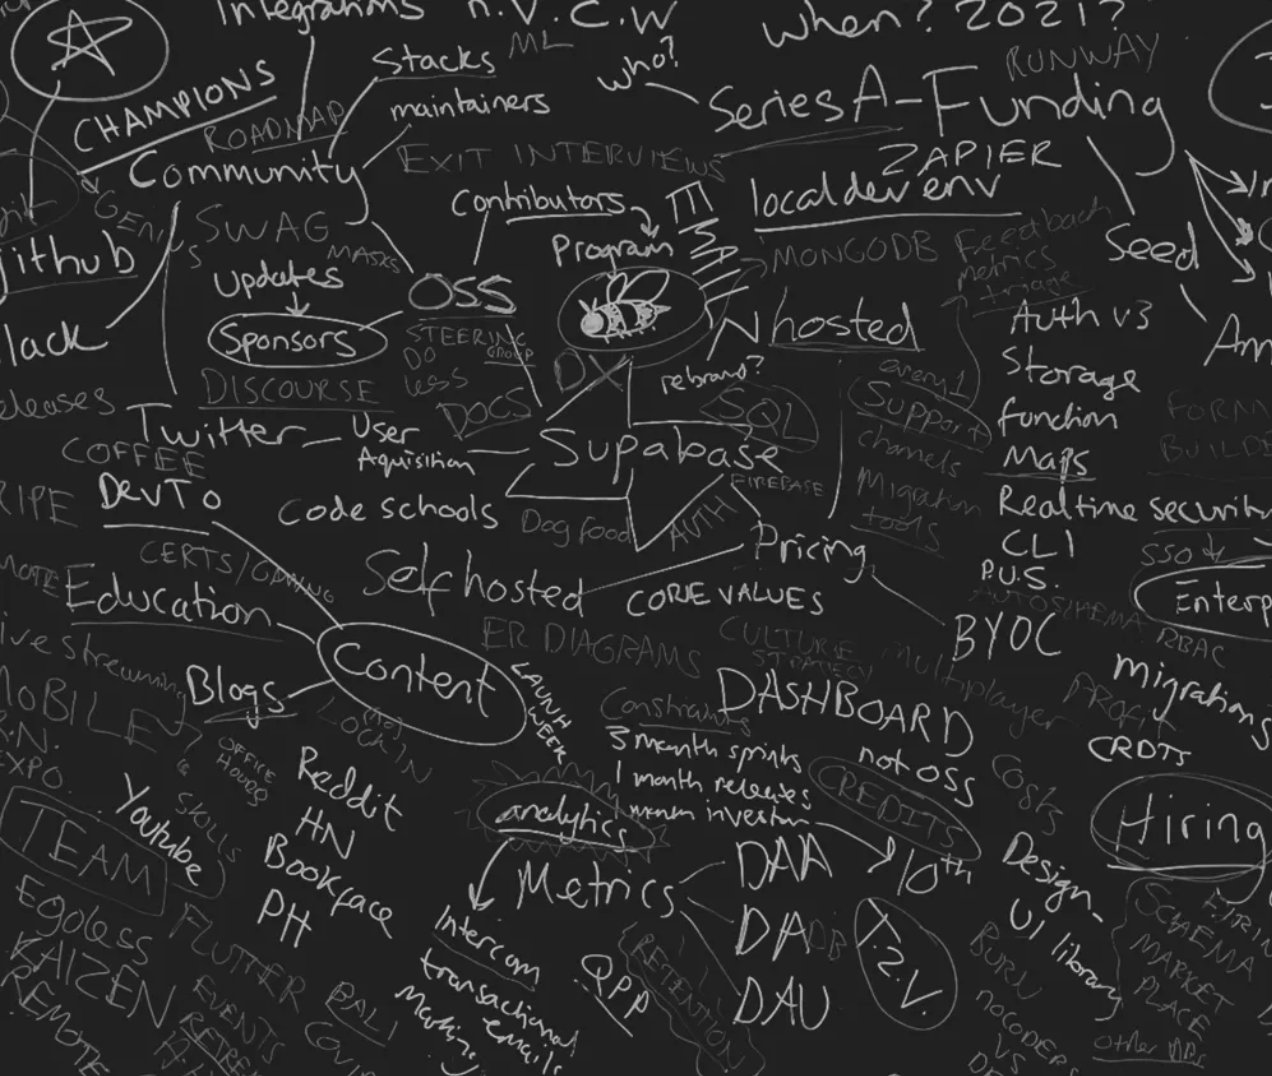 Integrations
n.v.c.w
when? 2021?
Stacks
ML
who?
RUNWAY
CHAMPIONS
maintainers
Series A-Funding
ROADMAP
Community
EXIT INTERVIEWS
ZAPIER
Contributors
local dev env
SWAG
Program
EMAIL
MONGODB
Feedback
metrics
triage
Seed
MASKS
github
Updates
OSS
hosted
Auth v3
Sponsors
STEERING
GROUP
DO
less
DX
rebrand?
Storage
lack
DISCOURSE
DOCS
SQL
every 1
Support
channels
function
Maps
FORM
BUILDE
eleases
Twitter
User
Aquisition
Supabase
FIREBASE
Migration
tools
COFFEE
DevTo
Code schools
Dog food
AUTH
Pricing
Realtime security
CLI
P.U.S.
SSO
RIPE
CERTS/
Education
Self hosted
CORE VALUES
Enterp
AUTOSCHEMA
RBAC
ER DIAGRAMS
CULTURE
STRATEGY
multiplayer
BYOC
ive streaming
MOBILE
R.N.
EXPO
Content
Blogs
LAUNH
WEEK
(no)
LOCK IN
Constraints
DASHBOARD
not OSS
Migrations
CRDTS
OFFICE
HOURS
3 month sprints
1 month releases
CREDITS
Costs
Hiring
TEAM
Youtube
SKILLS
Reddit
HN
Bookface
PH
analytics
Metrics
DAA
10th
Design
UI library
Egoless
KAIZEN
REMOTE
FLUTTER
EVENTS
BALI
Intercom
transacional
emails
QPP
RETENTION
DADB
DAU
T.2.V.
BURN
nocoders
vs
SCHEMA
MARKET
PLACE
other DBs